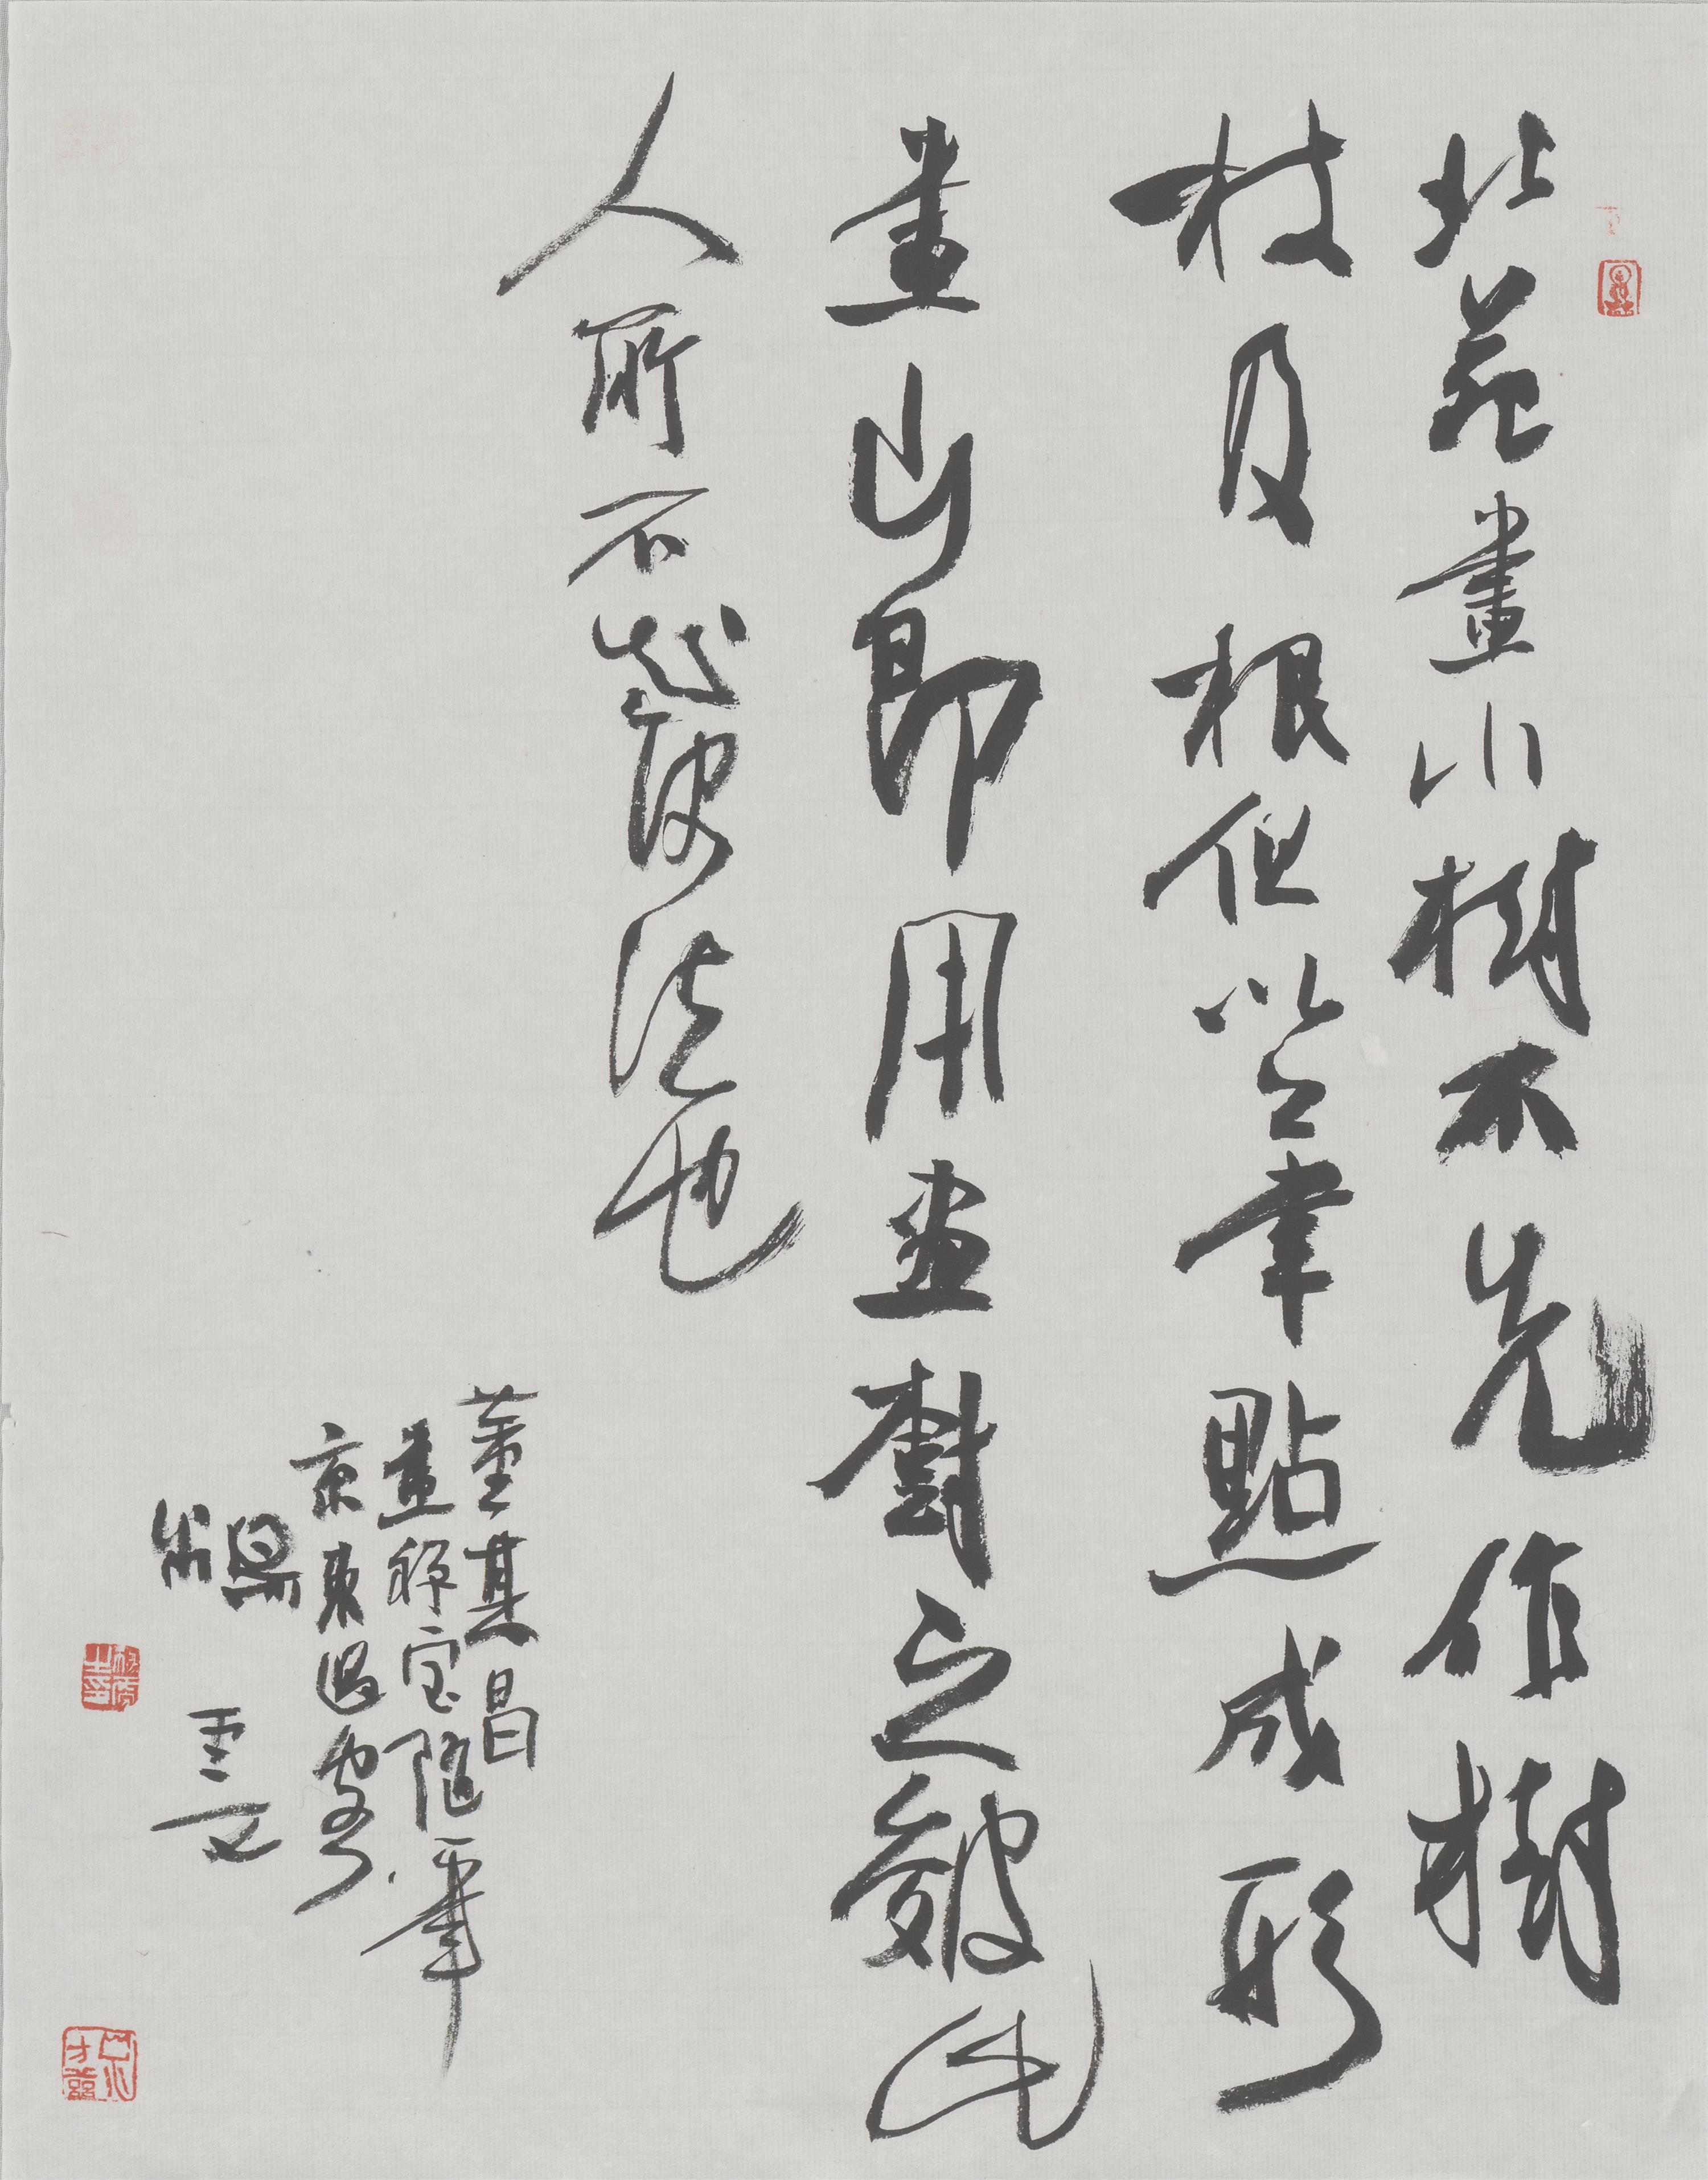 北苑畫小樹不先作樹
枝及根但以筆點成形
畫山即用畫樹之皴此
人所不法也
董其昌
畫禪室隨筆
京東